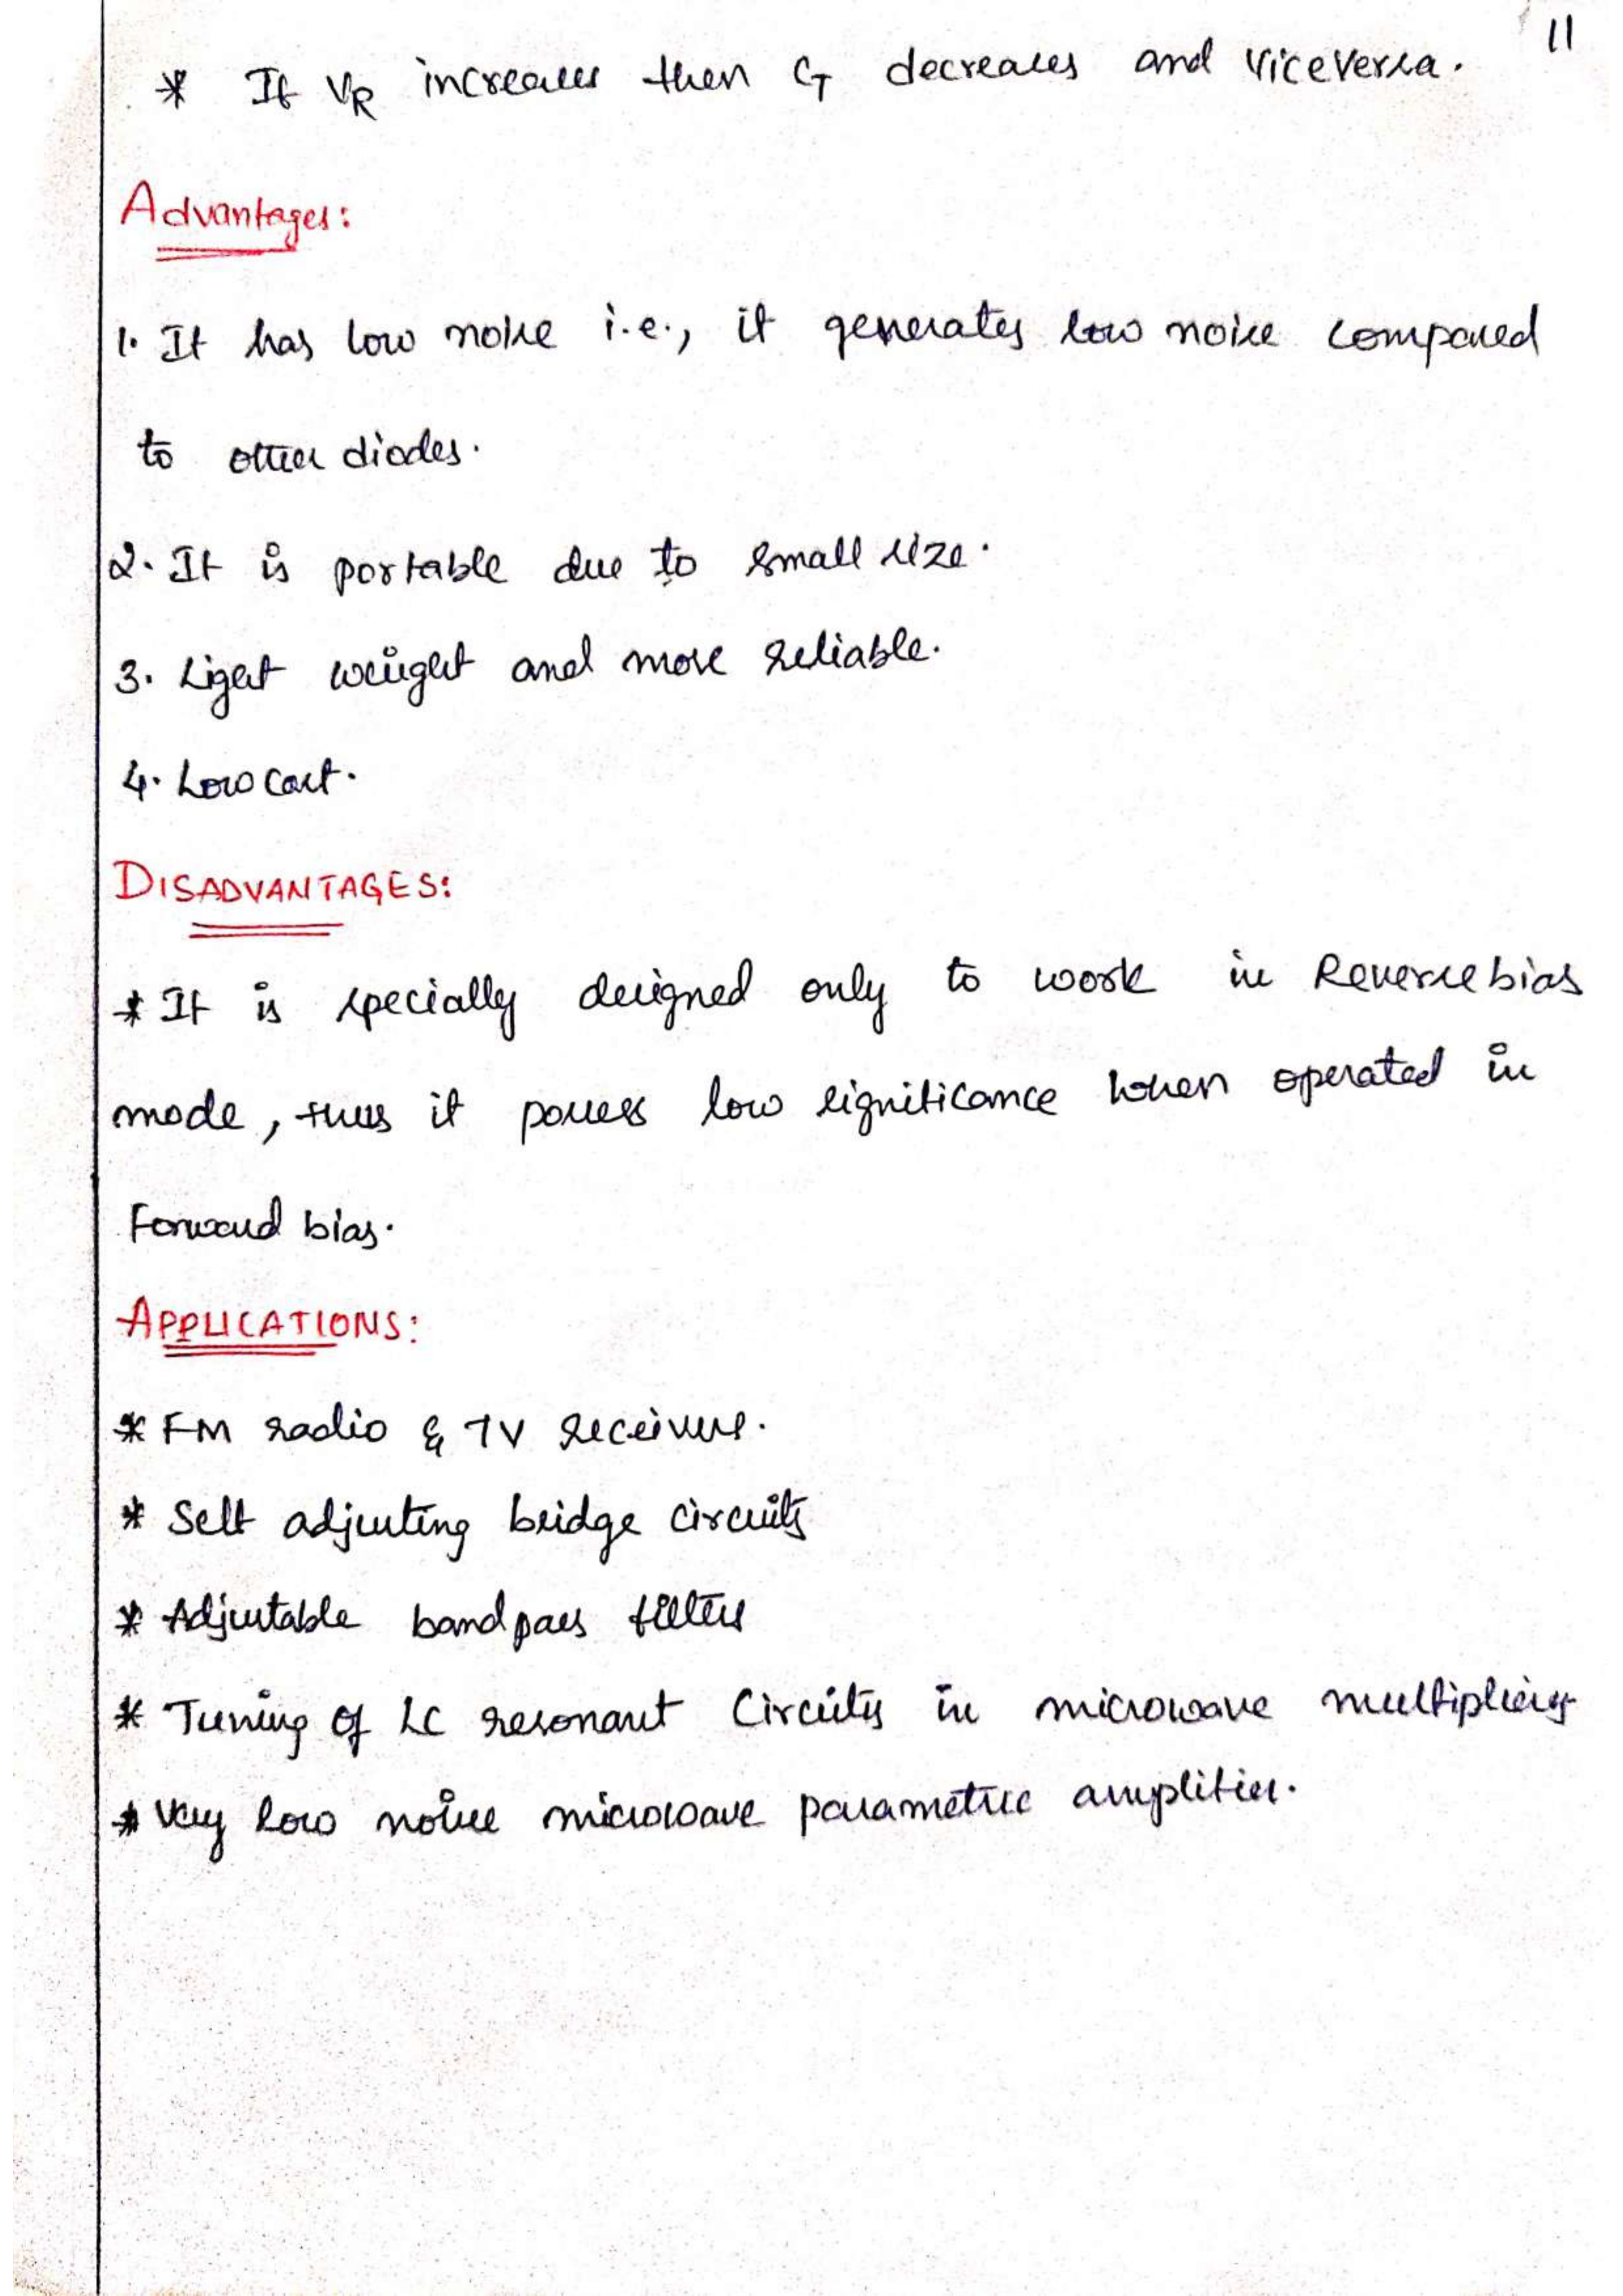 11
* If V_R increases then C_T decreases and viceversa.
Advantages:
1. It has low noise i.e., it generates low noise compared
to other diodes.
2. It is portable due to small size.
3. Light weight and more reliable.
4. Low cost.
DISADVANTAGES:
* It is specially designed only to work in Reverse bias
mode, thus it posses low significance when operated in
Forward bias.
APPLICATIONS:
* FM radio & TV receivers.
* Self adjusting bridge circuits
* Adjustable bandpass filters
* Tuning of LC resonant Circuits in microwave multipliers
* Very low noise microwave parametric amplifier.